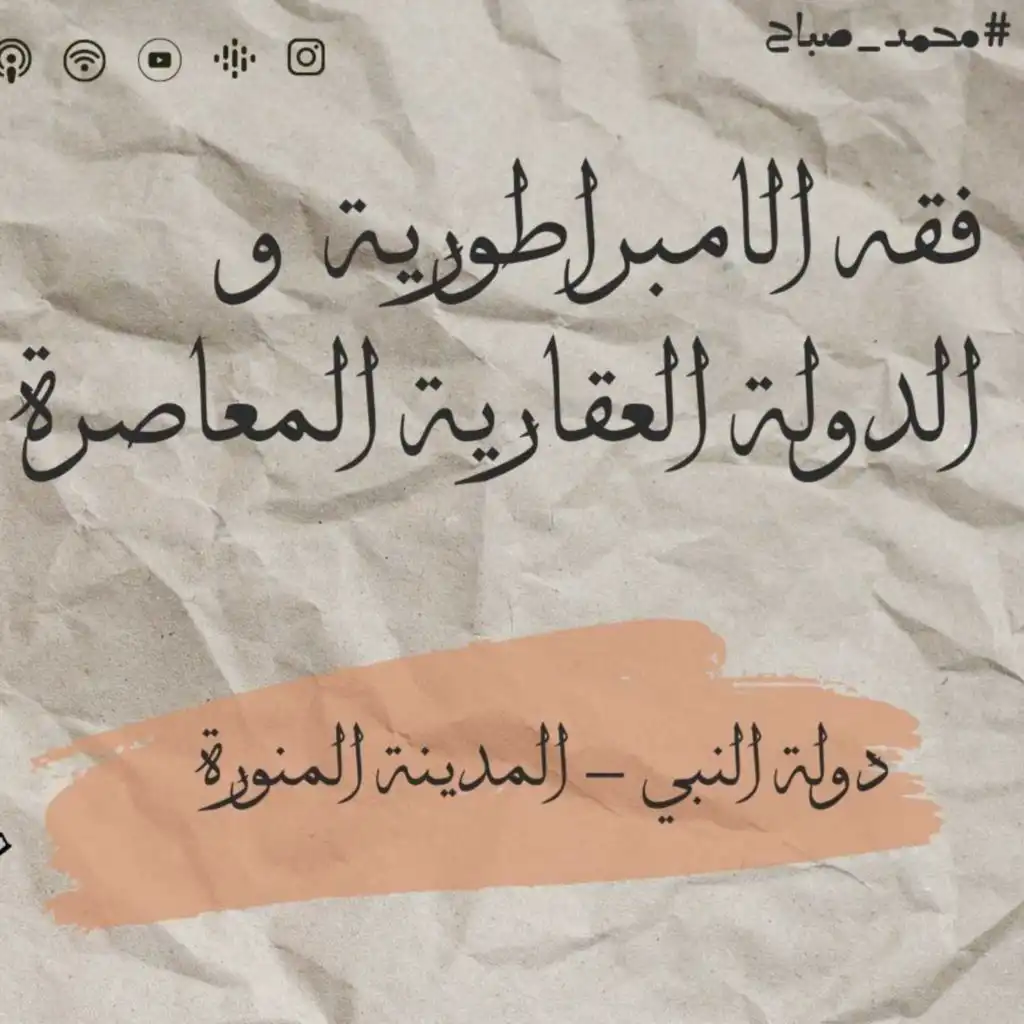 #محمد_صباح
فقه الامبراطورية و
الدولة العقارية المعاصرة
دولة النبي - المدينة المنورة